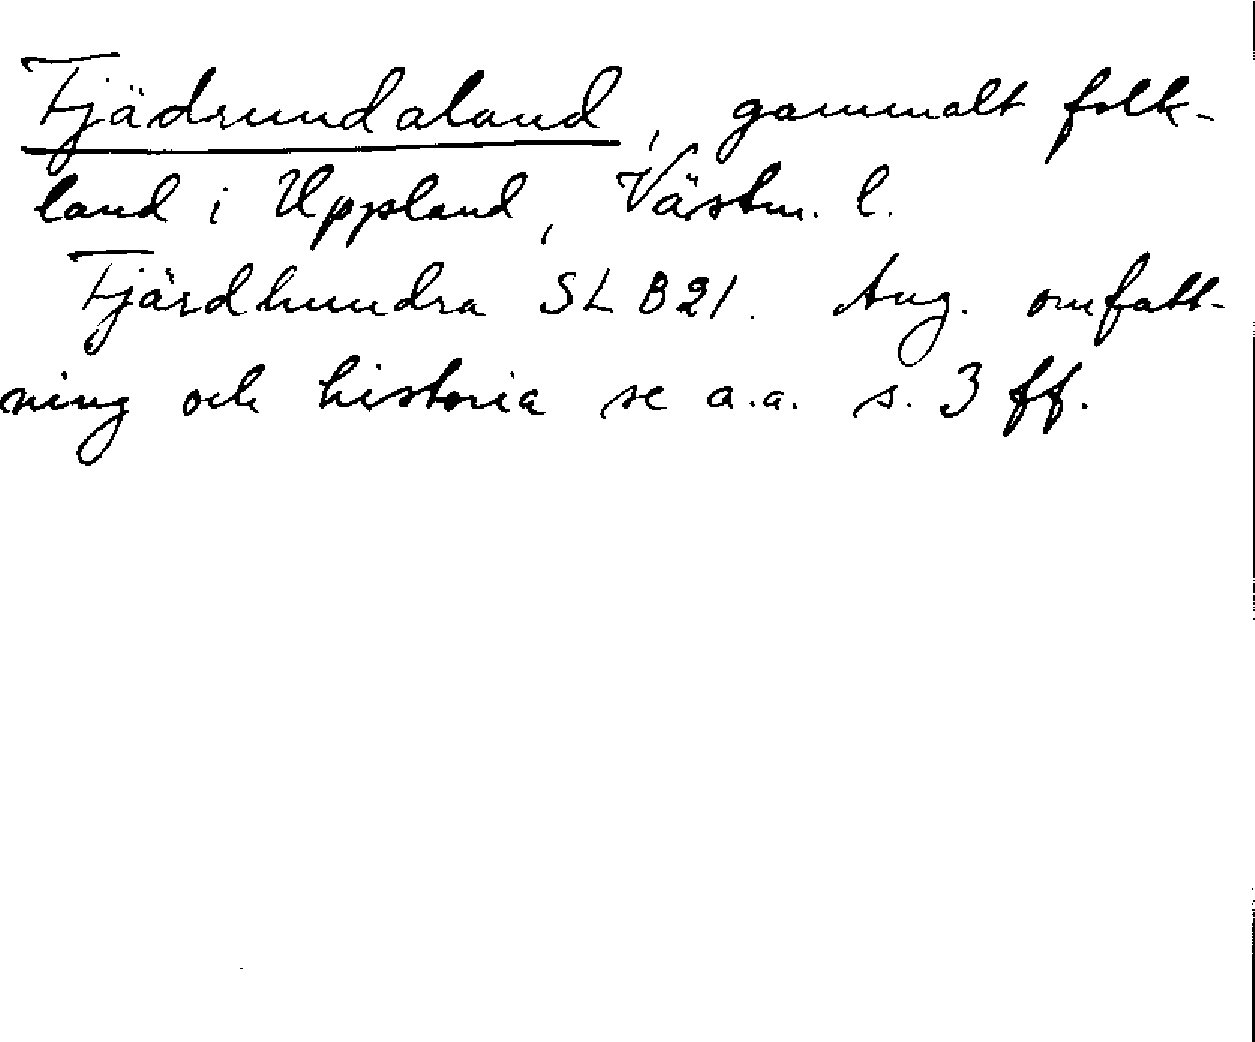 Fjädrundaland, gammalt folk-
land i Uppland, Västm. l.
Fjärdhundra SL B21. Ang. omfatt-
ning och historia se a.a. s. 3 ff.